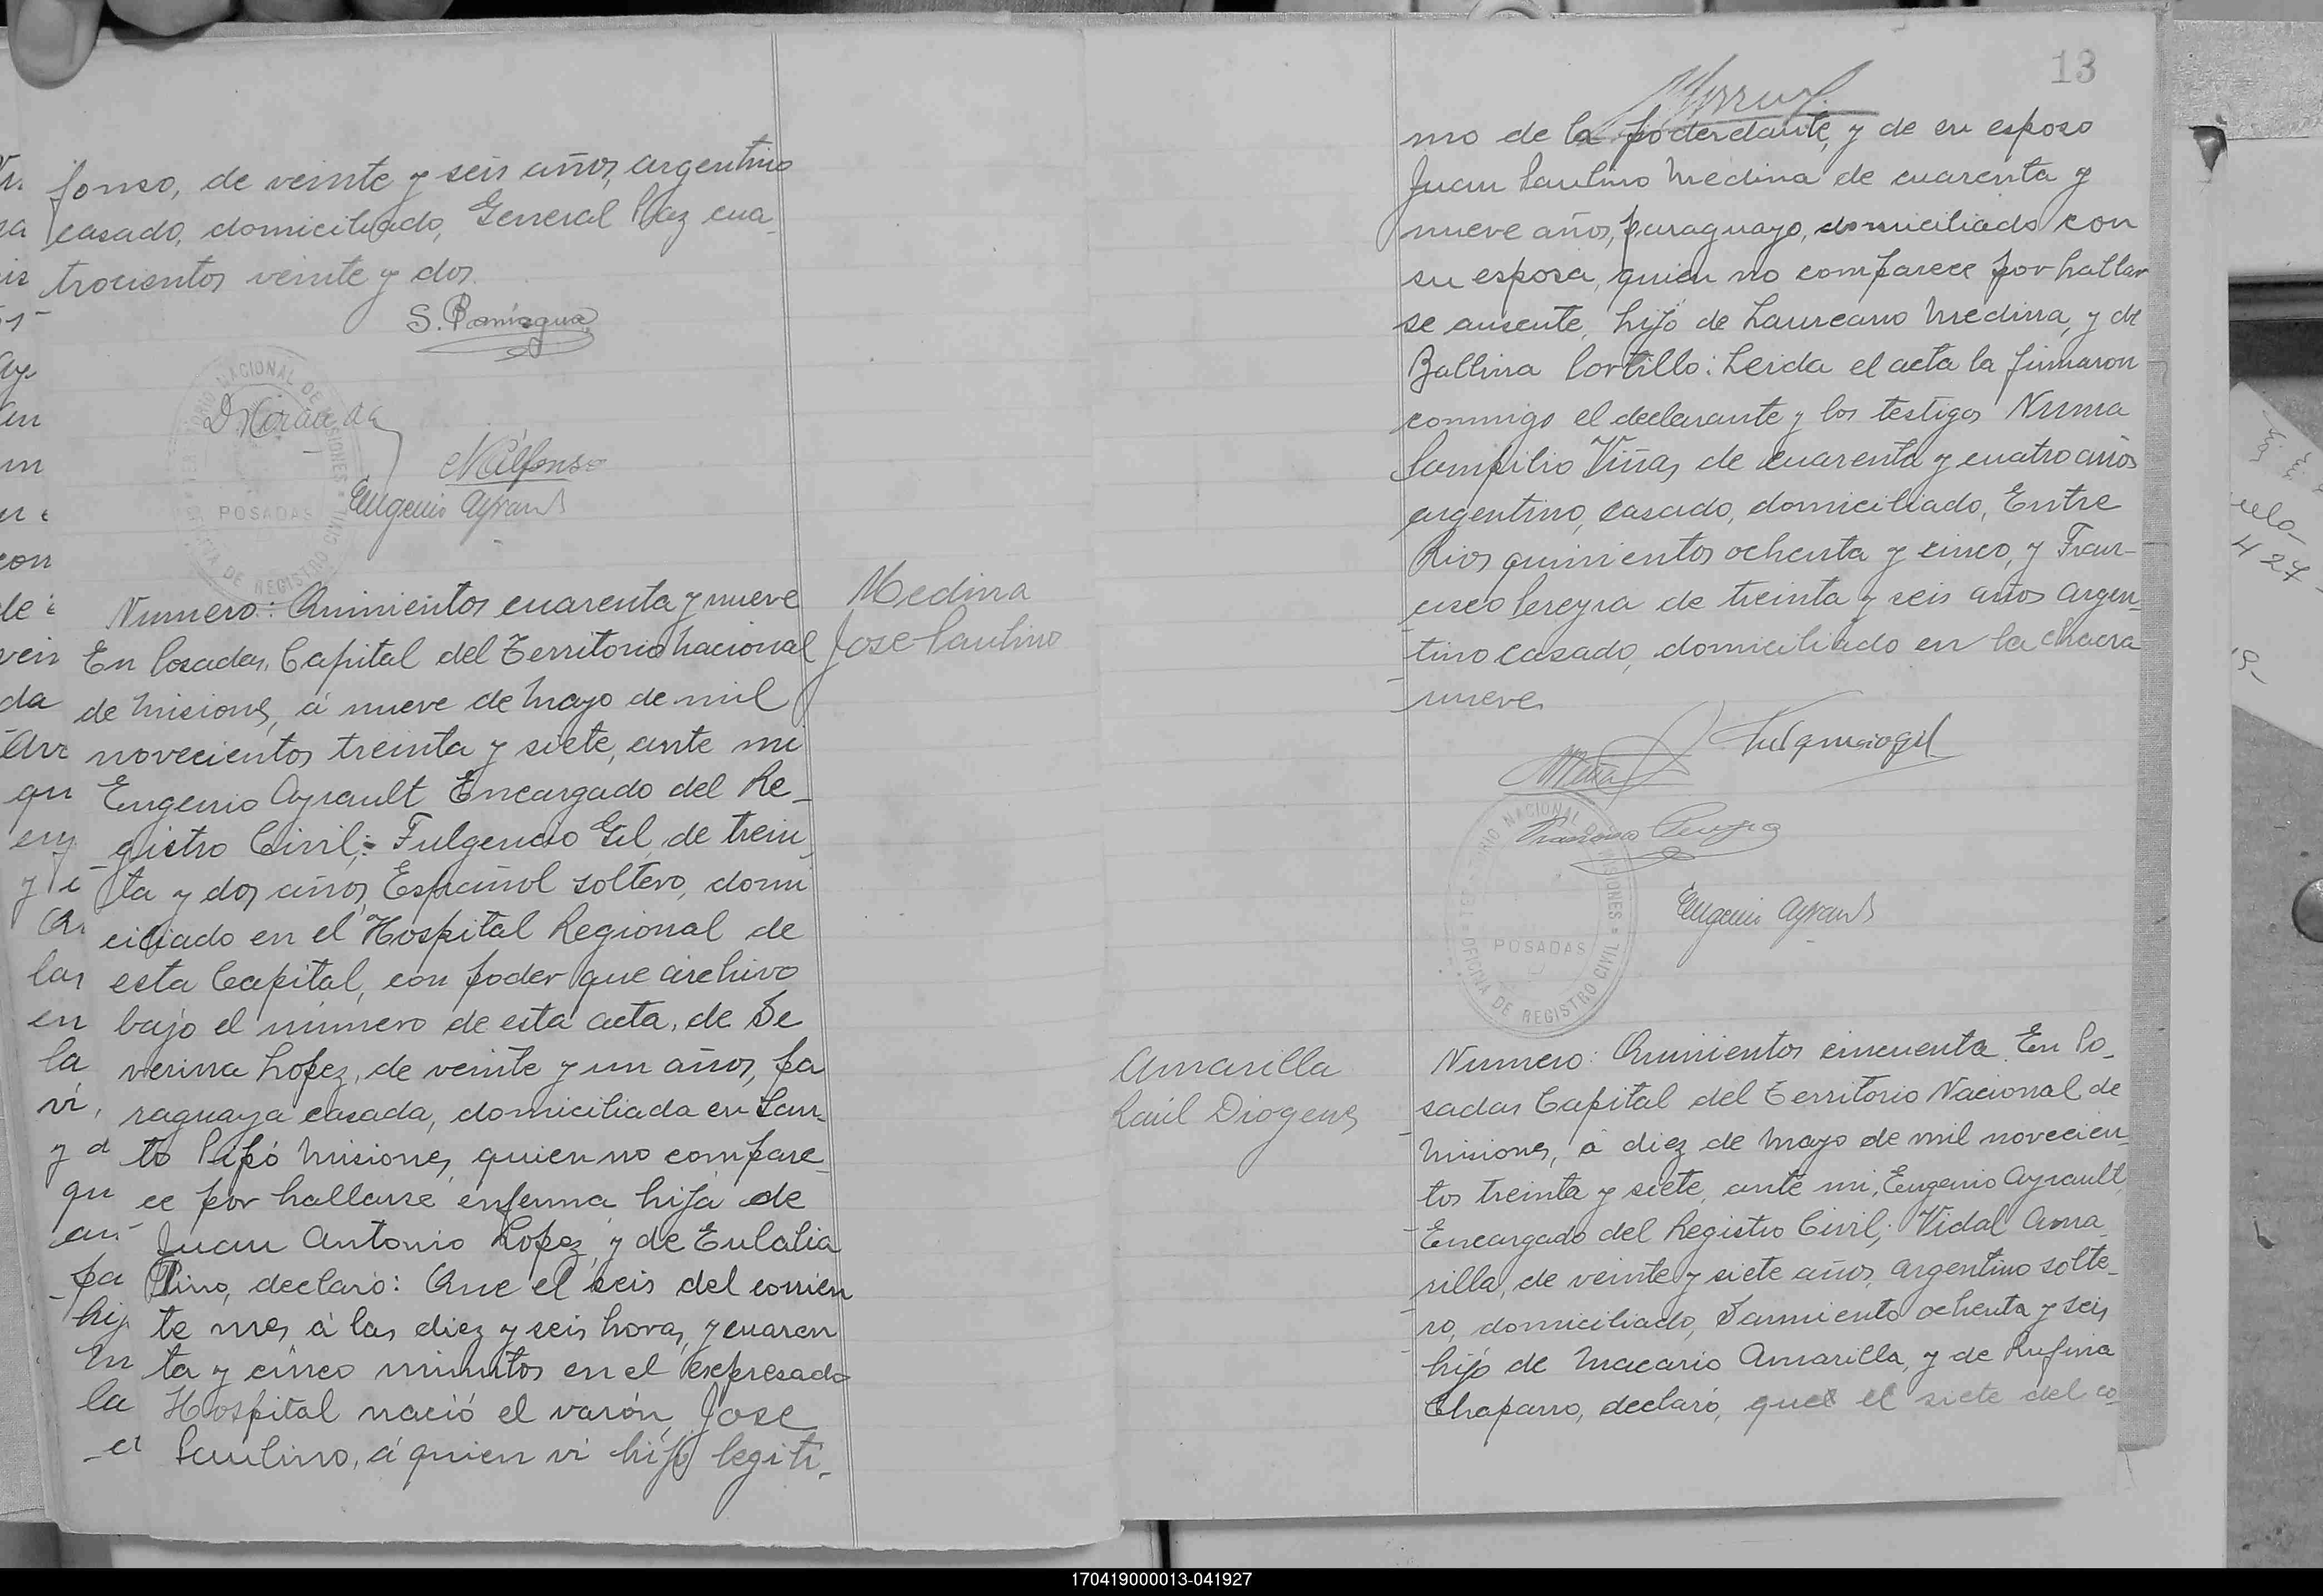 fonso, de veinte y seis años, argentino
casado, domiciliado, General Paz cua_
trocientos veinte y dos.
S. Paniagua
D. Miranda
N Alfonso
Eugenio Ayrault
TERRITORIO NACIONAL DE MISIONES
POSADAS
OFICINA DE REGISTRO CIVIL
Medina
Jose Paulino
Numero: Quinientos cuarenta y nueve
En Posadas, Capital del Territorio Nacional
de Misiones, á nueve de Mayo de mil
novecientos treinta y siete, ante mi
Eugenio Ayrault Encargado del Re_
gistro Civil; Fulgencio Gil, de trein_
ta y dos años, Español soltero, domi
ciliado en el Hospital Regional de
esta Capital, con poder que archivo
bajo el número de esta acta, de Se
verina Lopez, de veinte y un años, pa
raguaya casada, domiciliada en San_
to Pipó Misiones, quien no compare_
ce por hallarse enferma hija de
Juan Antonio Lopez, y de Eulalia
Pino, declaró: Que el seis del corrien
te mes, á las diez y seis horas, y cuaren
ta y cinco minutos en el expresado
Hospital nació el varón, Jose
Paulino, á quien vi hijo legiti_
13
mo de la poderdante, y de su esposo
Juan Paulino Medina de cuarenta y
nueve años, paraguayo, domiciliado con
su esposa, quien no comparece por hallar
se ausente, hijo de Laureano Medina, y de
Ballina Portillo: Leida el acta la firmaron
conmigo el declarante y los testigos Numa
Pompilio Viñas, de cuarenta y cuatro años
argentino, casado, domiciliado, Entre
Rios quinientos ochenta y cinco, y Fran_
cisco Pereyra de treinta y seis años argen_
tino casado, domiciliado en la chacra
nueve.
Fulgencio Gil
Francisco Pereyra
Eugenio Ayrault
TERRITORIO NACIONAL DE MISIONES
POSADAS
OFICINA DE REGISTRO CIVIL
Amarilla
Raúl Diogenes
Numero: Quinientos cincuenta. En Po_
sadas Capital del Territorio Nacional de
Misiones, á diez de Mayo de mil novecien_
tos treinta y siete, ante mi, Eugenio Ayrault,
Encargado del Registro Civil; Vidal Ama_
rilla, de veinte y siete años, argentino solte_
ro, domiciliado, Sarmiento ochenta y seis,
hijo de Macario Amarilla, y de Rufina
Chaparro, declaró, que el siete del co_
170419000013-041927